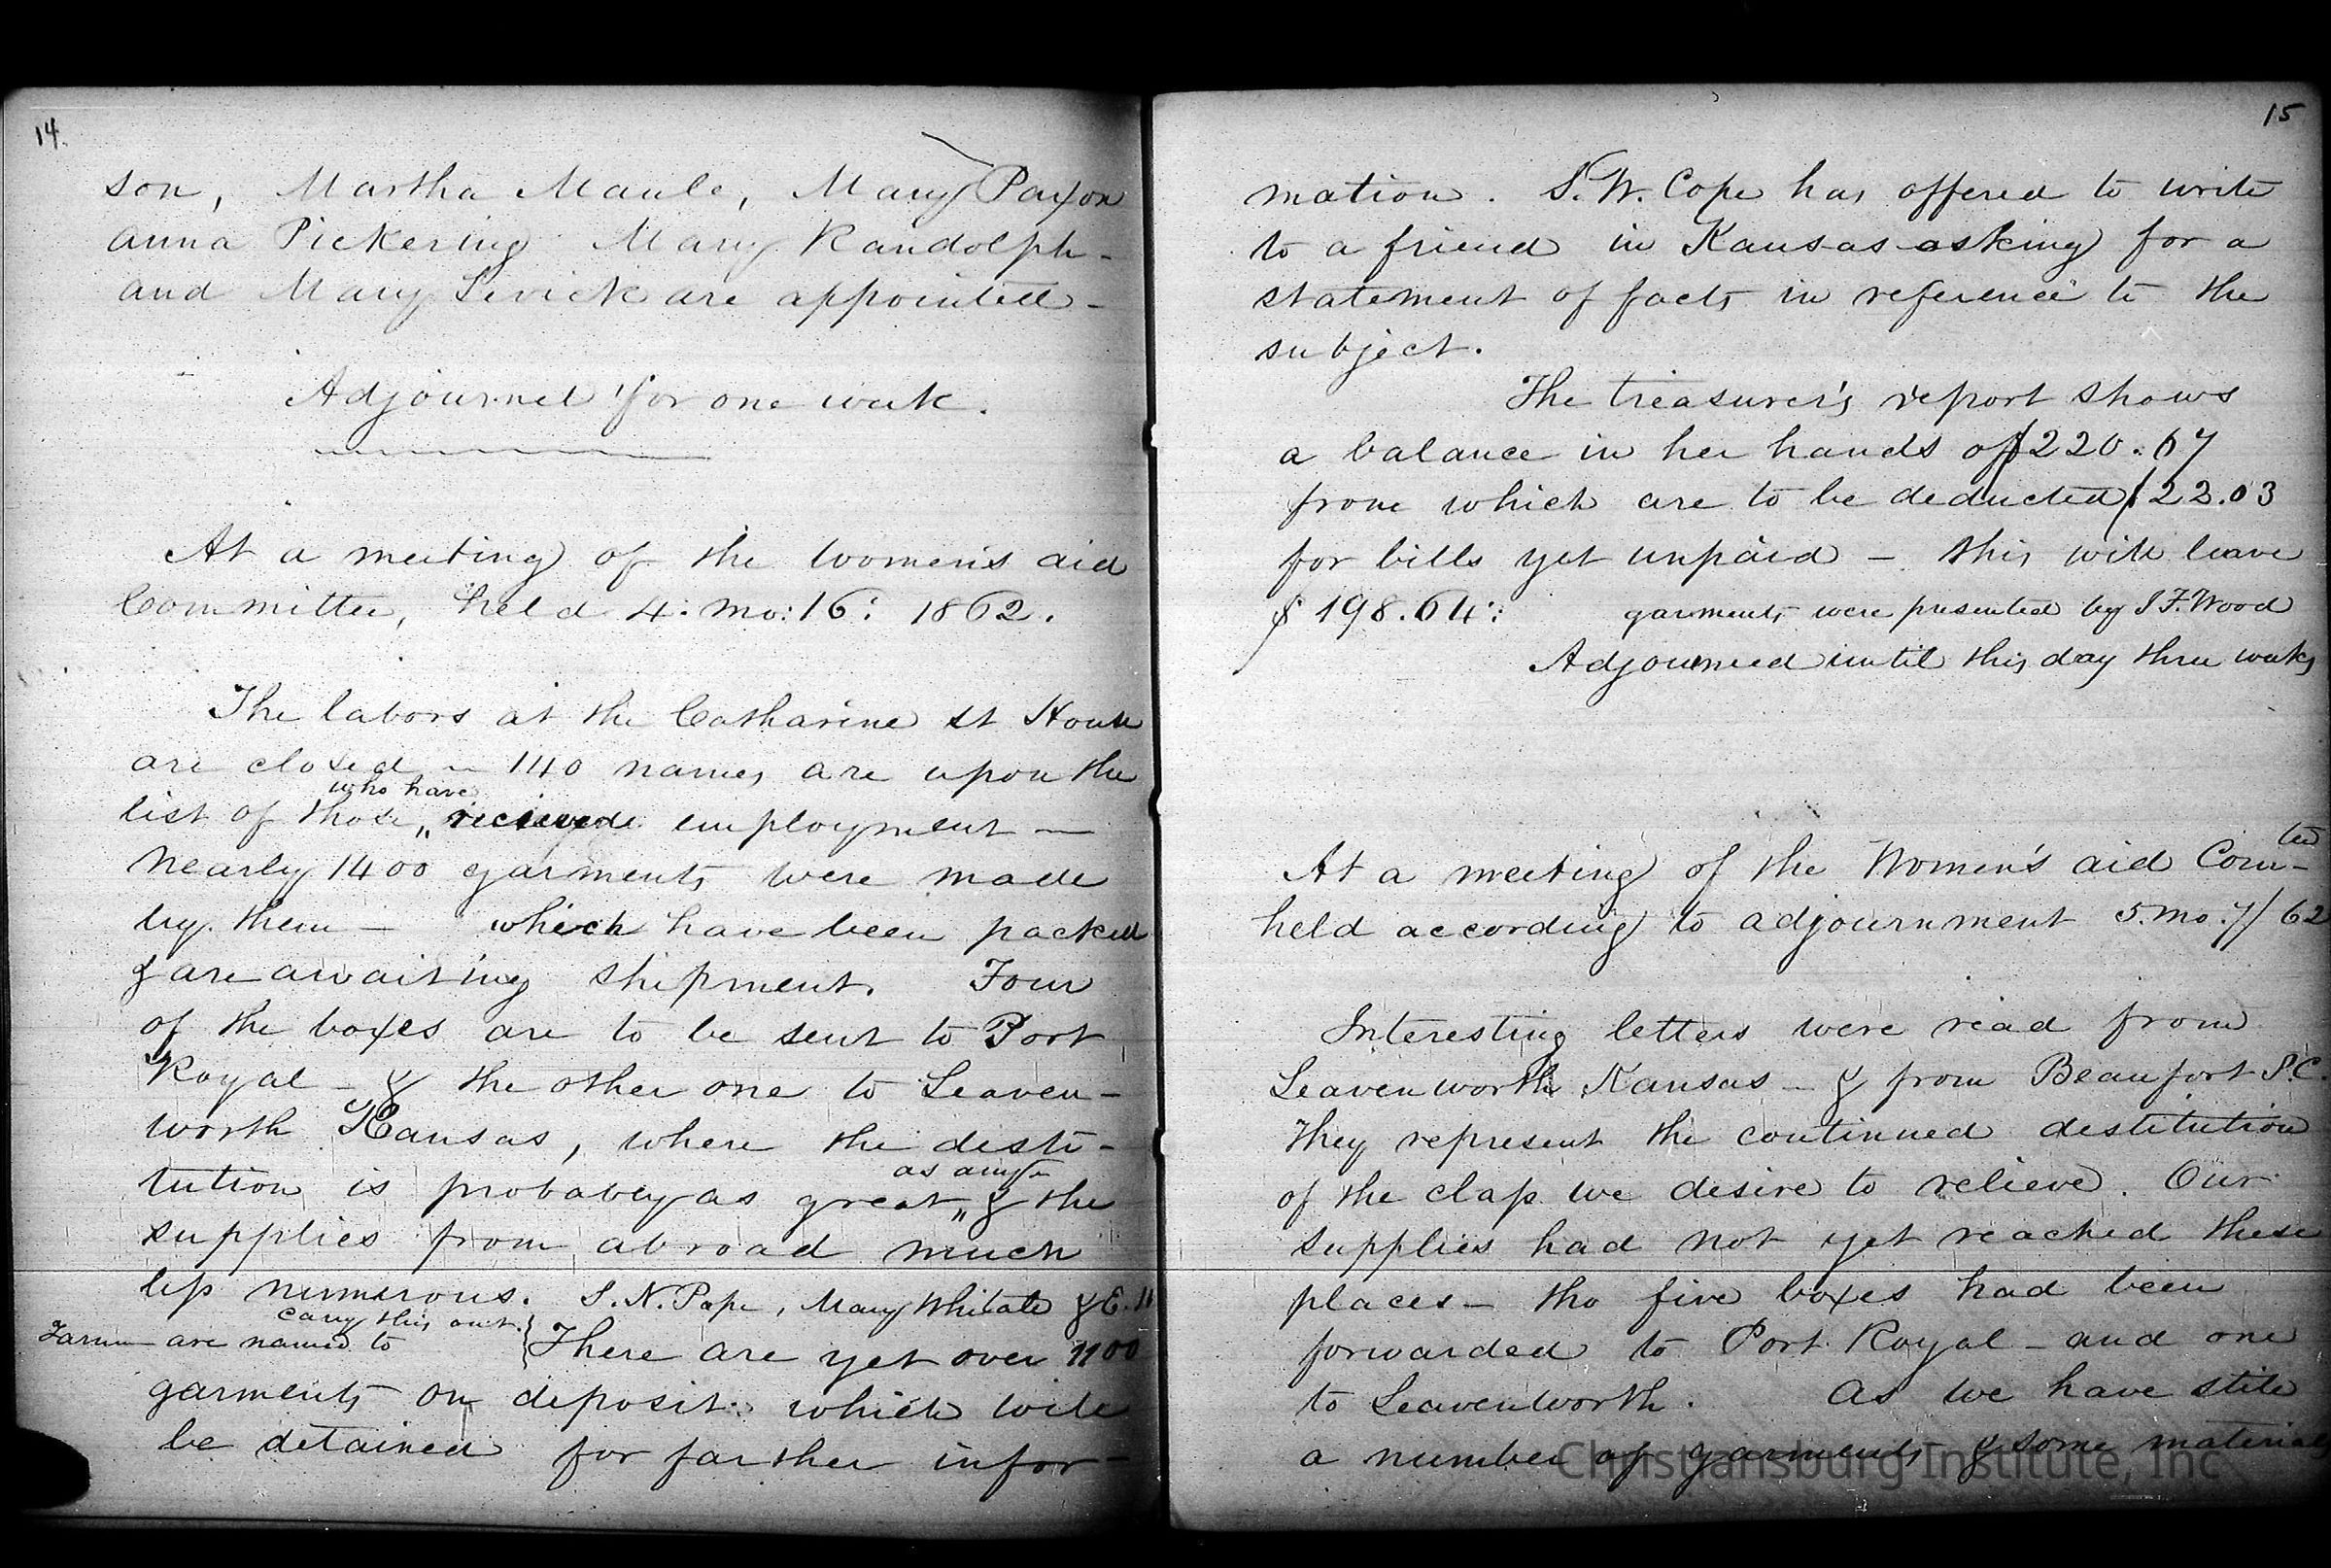 14.
son, Martha Maule, Mary Paxon
Anna Pickering Mary Randolph -
and Mary Levick are appointed -
Adjourned for one week.
At a meeting of the women's aid
Committee, held 4: mo: 16: 1862.
The labors at the Catharine St House
are closed - 140 names are upon the
who have
list of those „ received employment -
nearly 1400 garments were made
by them - which have been packed
& are awaiting shipment. Four
of the boxes are to be sent to Port
Royal - & the other one to Leaven-
worth Kansas, where the desti-
as any
tution is probably as great „ & the
supplies from abroad much
less numerous. S. N. Pope, Mary Whitall & E.
carry this out.
are named to There are yet over 1100
garments on deposit: which will
be detained for farther infor-
15
mation. S. W. Cope has offered to write
to a friend in Kansas asking for a
statement of facts in reference to the
subject.
The treasurer's report shows
a balance in her hands of $220.67
from which are to be deducted $22.03
for bills yet unpaid - this will leave
$198.64: garments were presented by I F. Wood
Adjourned until this day three weeks
At a meeting of the Women's aid Com-tee
held according to adjournment 5. mo. 7/62
Interesting letters were read from
Leavenworth Kansas - & from Beaufort S.C.
They represent the continued destitution
of the class we desire to relieve. Our
supplies had not yet reached these
places - tho five boxes had been
forwarded to Port Royal - and one
to Leavenworth. As we have still
a number of garments & some materials
Christiansburg Institute, Inc